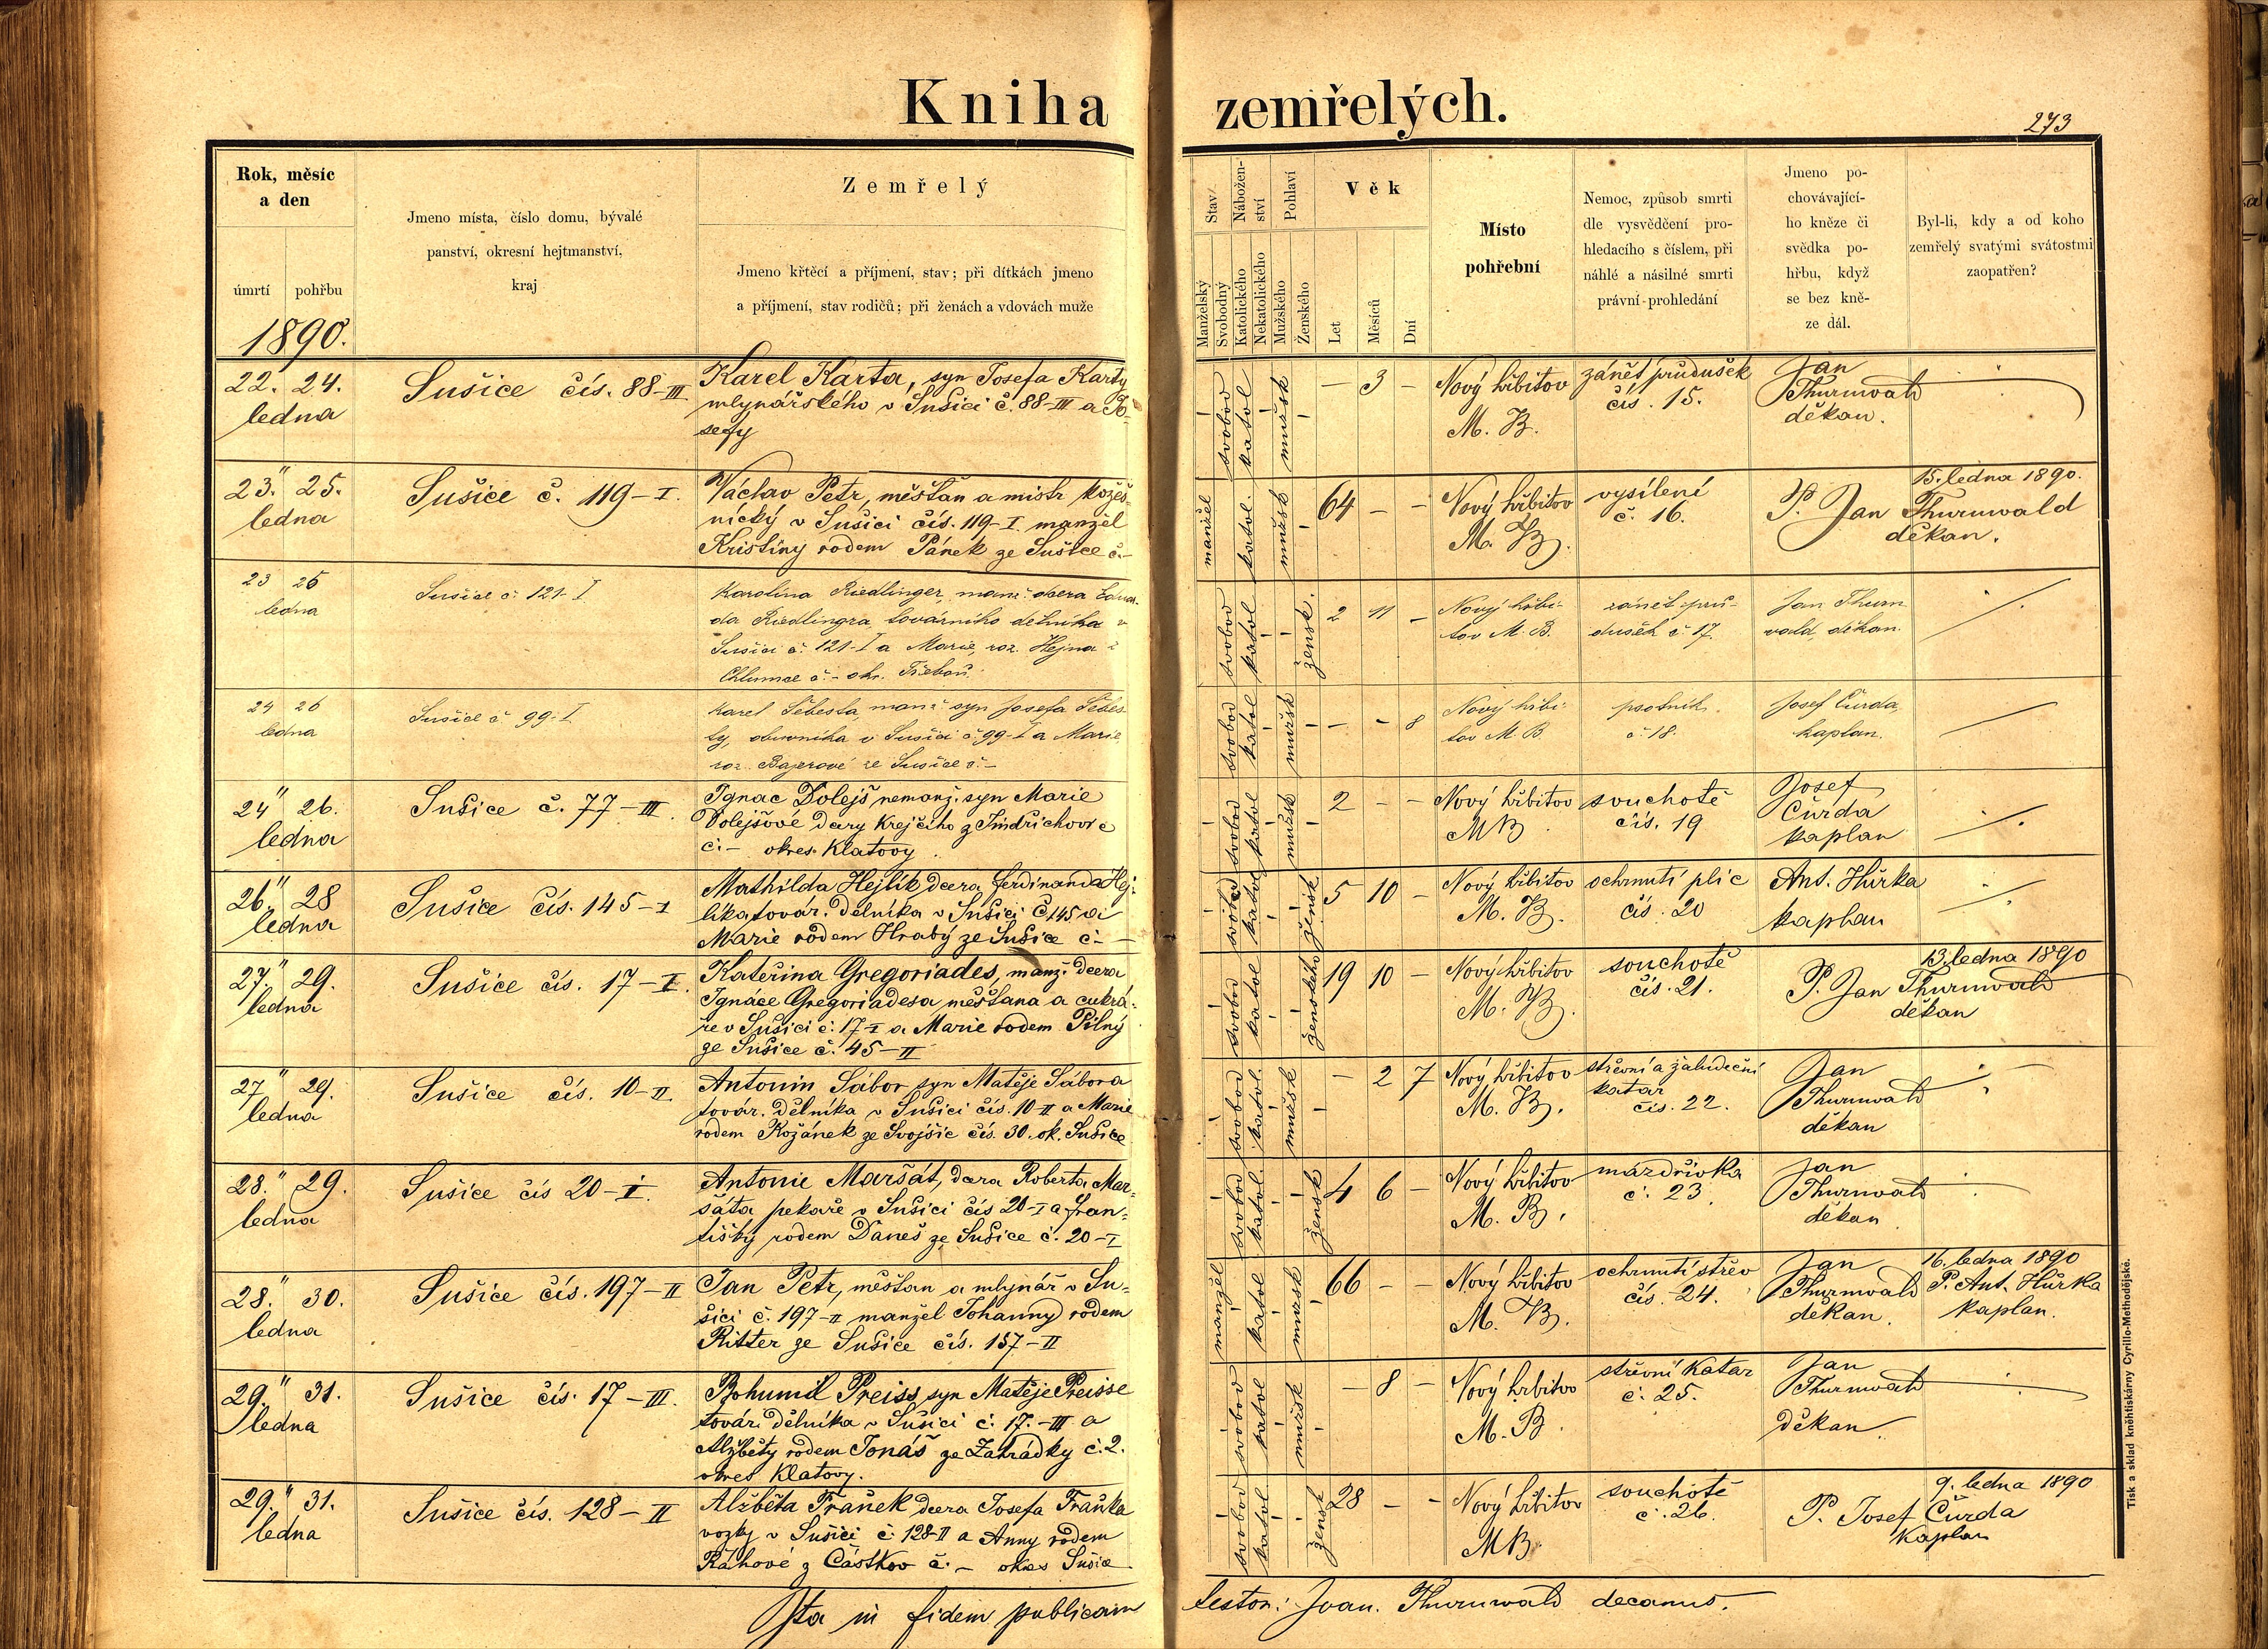 Kniha zemřelých.
273
Rok, měsíc
a den
úmrtí pohřbu
1890.
Jmeno místa, číslo domu, bývalé
panství, okresní hejtmanství,
kraj
Zemřelý
Jmeno křtěcí a příjmení, stav; při dítkách jmeno
a příjmení, stav rodičů; při ženách a vdovách muže
Stav
Manželský
Svobodný
Nábožen-
ství
Katolického
Nekatolického
Pohlaví
Mužského
Ženského
Věk
Let
Měsíců
Dní
Místo
pohřební
Nemoc, způsob smrti
dle vysvědčení pro-
hledacího s číslem, při
náhlé a násilné smrti
právní prohledání
Jmeno po-
chovávající-
ho kněze či
svědka po-
hřbu, když
se bez kně-
ze dál.
Byl-li, kdy a od koho
zemřelý svatými svátostmi
zaopatřen?
22. 24.
ledna
Sušice čís. 88-III
Karel Karta, syn Josefa Karty
mlynářského v Sušici č. 88-III a Jo-
sefy
svobod katol mužsk
– 3 –
Nový hřbitov
M. B.
zánět průdušek
čís. 15.
Jan
Thurnwald
děkan.
23." 25.
ledna
Sušice č. 119-I.
Václav Petr, měšťan a mistr kožeš-
nický v Sušici čís. 119-I manžel
Kristiny rodem Pánek ze Sušice č.-
manžel katol. mužsk
64 – –
Nový hřbitov
M. B.
vysílení
č. 16.
15. ledna 1890.
P. Jan Thurnwald
děkan.
23 25
ledna
Sušice č. 121-I
Karolina Riedlinger, manž. dcera Eduar-
da Riedlingra, továrního dělníka v
Sušici č. 121-I a Marie, roz. Hejna z
Chlumce č.- okr. Třeboň.
svobod katol žensk.
2 11 –
Nový hřbi-
tov M. B.
zánět prů-
dušek č. 17.
Jan Thurn
vald, děkan.
24 26
ledna
Sušice č. 99-I
Karel Šebesta, manž. syn Josefa Šebes-
ty, obuvníka v Sušici č. 99-I a Marie
roz. Bajerové ze Sušice č.-
svobod katol mužsk
– – 8
Nový hřbi-
tov M. B.
psotník.
č. 18.
Josef Čurda,
kaplan.
24" 26.
ledna
Sušice č. 77-III.
Ignac Dolejš nemanž. syn Marie
Dolejšové dcery krejčího z Jindřichovic
č.- okres Klatovy.
svobod katol mužsk
2 – –
Nový hřbitov
MB
souchotě
čís. 19
Josef
Čurda
kaplan
26." 28
ledna
Sušice čís. 145-I
Mathilda Hejlík dcera Ferdinanda Hej-
líka továr. dělníka v Sušici č. 145 a
Marie rodem Hrabý ze Sušice č.-
svobod katol žensk
5 10 –
Nový hřbitov
M. B.
ochrnutí plic
čís. 20
Ant. Hůrka
kaplan
27." 29.
ledna
Sušice čís. 17-I.
Kateřina Gregoriades, manž. dcera
Ignáce Gregoriadesa měšťana a cukrá-
ře v Sušici č. 17-I a Marie rodem Pilný
ze Sušice č. 45-II
svobod katol ženského
19 10 –
Nový hřbitov
M. B.
souchotě
čís. 21.
13. ledna 1890
P. Jan Thurnwald
děkan
27" 29.
ledna
Sušice čís. 10-II
Antonín Sábor, syn Matěje Sábora
továr. dělníka v Sušici čís. 10-II a Marie
rodem Kožánek ze Svojšic čís. 30. ok. Sušice
svobod katol. mužsk
– 2 7
Nový hřbitov
M. B.
střevní a žaludeční
katar
čís. 22.
Jan
Thurnwald
děkan
28." 29.
ledna
Sušice čís 20-I.
Antonie Maršát, dcera Roberta Mar-
šáta pekaře v Sušici čís 20-I a Fran-
tišky rodem Daneš ze Sušice č. 20-I
svobod katol. žensk
4 6 –
Nový hřbitov
M. B.
mázdřivka
č. 23.
Jan
Thurnwald
děkan
28." 30.
ledna
Sušice čís. 197-II
Jan Petr, měšťan a mlynář v Su-
šici č. 197-II manžel Johanny rodem
Ritter ze Sušice čís. 157-II
manžel katol mužsk
66 – –
Nový hřbitov
M. B.
ochrnutí střev
čís. 24.
Jan
Thurnwald
děkan.
16. ledna 1890
P. Ant. Hůrka
kaplan.
29." 31.
ledna
Sušice čís. 17-III.
Bohumil Preiss, syn Matěje Preisse
továr. dělníka v Sušici č. 17.-III a
Alžběty rodem Jonáš ze Zahrádky č. 2.
okres Klatovy.
svobod katol mužsk
– 8 –
Nový hřbitov
M. B.
střevní katar
č. 25.
Jan
Thurnwald
děkan.
29." 31.
ledna
Sušice čís. 128-II
Alžběta Franěk dcera Josefa Fraňka
vozky v Sušici č. 128-II a Anny rodem
Ráhové z Částkov č.- okres Sušice
svobod katol žensk
28 – –
Nový hřbitov
MB.
souchotě
č. 26.
9. ledna 1890
P. Josef Čurda
kaplan
Ita in fidem publicam testor: Joan. Thurnwald decanus.
Tisk a sklad knihtiskárny Cyrillo-Methodějské.